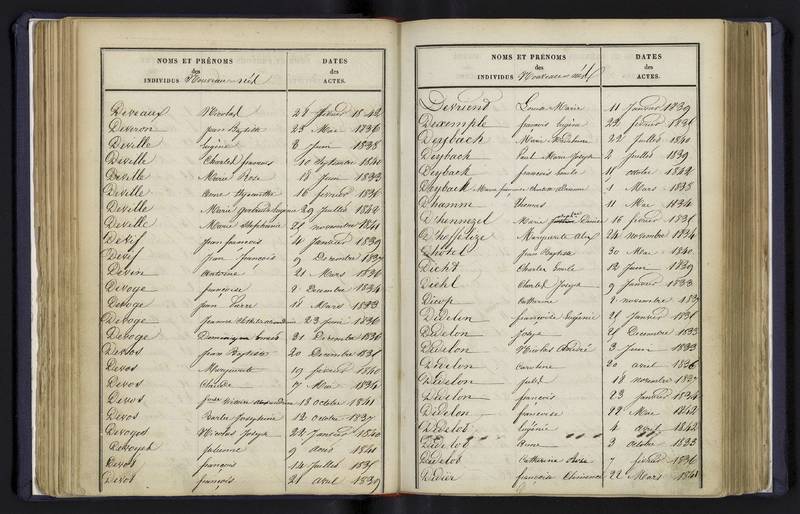 NOMS ET PRÉNOMS
des
INDIVIDUS Nouveau-nés
DATES
des
ACTES.
Deveaux Nicolas 28 février 1842
Deveron Jean Baptiste 23 Mai 1836
Deville Eugène 8 Juin 1838
Deville Charles françois 10 Septembre 1840
Deville Marie Rose 18 Juin 1833
Deville Anne Hyacinthe 16 février 1836
Deville Marie 29 Juillet 1842
Deville Marie Stéphanie 21 novembre 1841
Devif Jean françois 4 Janvier 1839
Devif Jean françois 9 Décembre 1837
Devin Antoine 21 Mars 1836
Devoge françoise 2 Décembre 1834
Devoge Jean Pierre 18 Mars 1833
Devoge Jeanne 23 Juin 1836
Devoge Dominique Ernest 31 Décembre 1836
Devos Jean Baptiste 20 Décembre 1831
Devos Marguerite 19 février 1840
Devos Claude 7 Mai 1834
Devos 13 octobre 1841
Devos Barbe Joséphine 12 octobre 1837
Devoges Nicolas Joseph 22 Janvier 1840
Julienne 9 août 1841
Devot françois 14 Juillet 1831
Devot françois 21 avril 1839
NOMS ET PRÉNOMS
des
INDIVIDUS Nouveau-nés
DATES
des
ACTES.
Devriend Louise Marie 11 Janvier 1839
Dexemple françois Eugène 22 février 1831
Deysbach Marie Madeleine 22 Juillet 1840
Deybach Paul Marie Joseph 2 Juillet 1839
Deyback françois Emile 18 octobre 1842
Deyback Marie 1 Mars 1838
Dhamm Thomas 11 Mai 1834
D'hennezel Marie 16 février 1831
D'hoffelize Marguerite Alix 24 novembre 1834
Dhotel Jean Baptiste 30 Mai 1840
Dicht Charles Emile 12 Juin 1839
Diehl Charles Joseph 9 Janvier 1833
Catherine 2 novembre 1839
Didelon françoise Eugénie 21 Janvier 1836
Didelon Joseph 21 Décembre 1833
Didelon Nicolas André 3 Juin 1833
Didelon Caroline 20 avril 1836
Didelon Jules 18 novembre 1837
Didelon françois 23 Janvier 1834
Didelon françoise 22 Mai 1842
Didelot Eugénie 4 avril 1842
Didelot Anne 3 octobre 1833
Didelot Catherine 7 février 1836
Didier françoise Clémence 22 Mars 1841